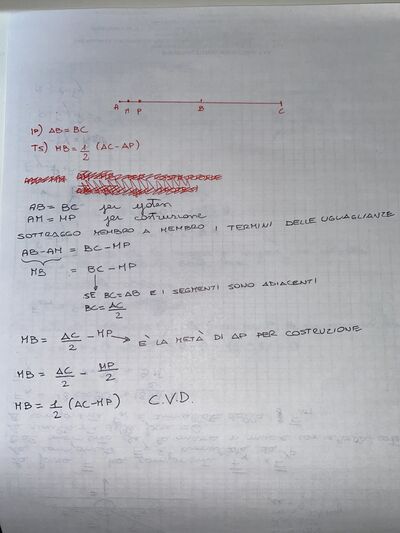 A M P B C
IP) AB = BC
TS) MB = 1/2 (AC - AP)
AB = BC per ipotesi
AM = MP per costruzione
SOTTRAGGO MEMBRO A MEMBRO I TERMINI DELLE UGUAGLIANZE
AB - AM = BC - MP
MB = BC - MP
SE BC = AB E I SEGMENTI SONO ADIACENTI
BC = AC/2
MB = AC/2 - MP → È LA METÀ DI AP PER COSTRUZIONE
MB = AC/2 - MP/2
MB = 1/2 (AC - MP) C.V.D.